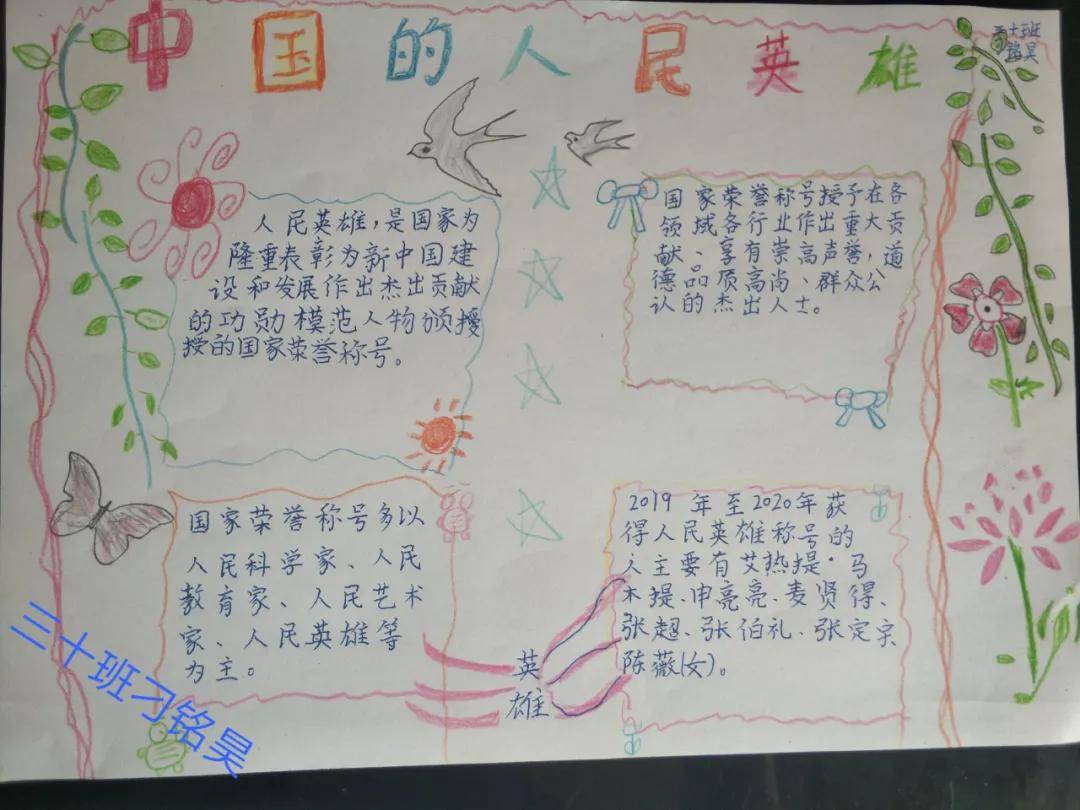 中国的人民英雄
三十班
铭昊
人民英雄,是国家为
隆重表彰为新中国建
设和发展作出杰出贡献
的功勋模范人物颁授
授的国家荣誉称号。
国家荣誉称号授予在各
领域各行业作出重大贡
献、享有崇高声誉,道
德品质高尚、群众公
认的杰出人士。
国家荣誉称号多以
人民科学家、人民
教育家、人民艺术
家、人民英雄等
为主。
2019年至2020年获
得人民英雄称号的
人主要有艾热提·马
木提、申亮亮、麦贤得、
张超、张伯礼、张定宗
陈薇(女)。
英
雄
三十班刁铭昊